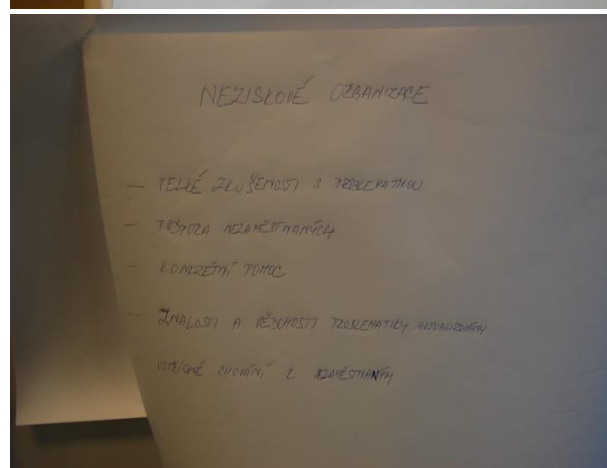 NEZISKOVÉ ORGANIZACE
— VELKÉ ZKUŠENOSTI S PROBLEMATIKOU
— PODPORA NEZAMĚSTNANÝCH
— KONKRÉTNÍ POMOC
— ZNALOSTI A VĚDOMOSTI PROBLEMATIKY AKTUALIZOVÁNY
— VSTŘÍCNÉ CHOVÁNÍ K NEZAMĚSTNANÝM